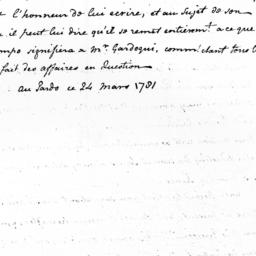 l'honneur de lui ecrire, et au sujet de son
il peut lui dire qu'il se remet entierem.t a ce que
mpo signifiera a Mr. Gardoqui, comm' étant tous l
fait des affaires en Question
au Pardo ce 24 Mars 1781